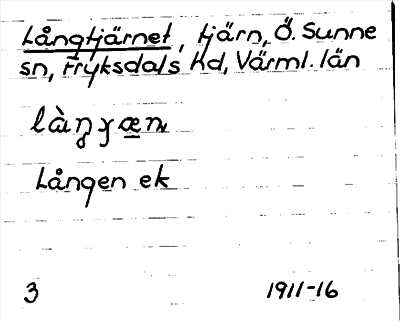 Långtjärnet, tjärn, Ö. Sunne
sn, Fryksdals hd, Värml. län
Lången ek
3 1911-16